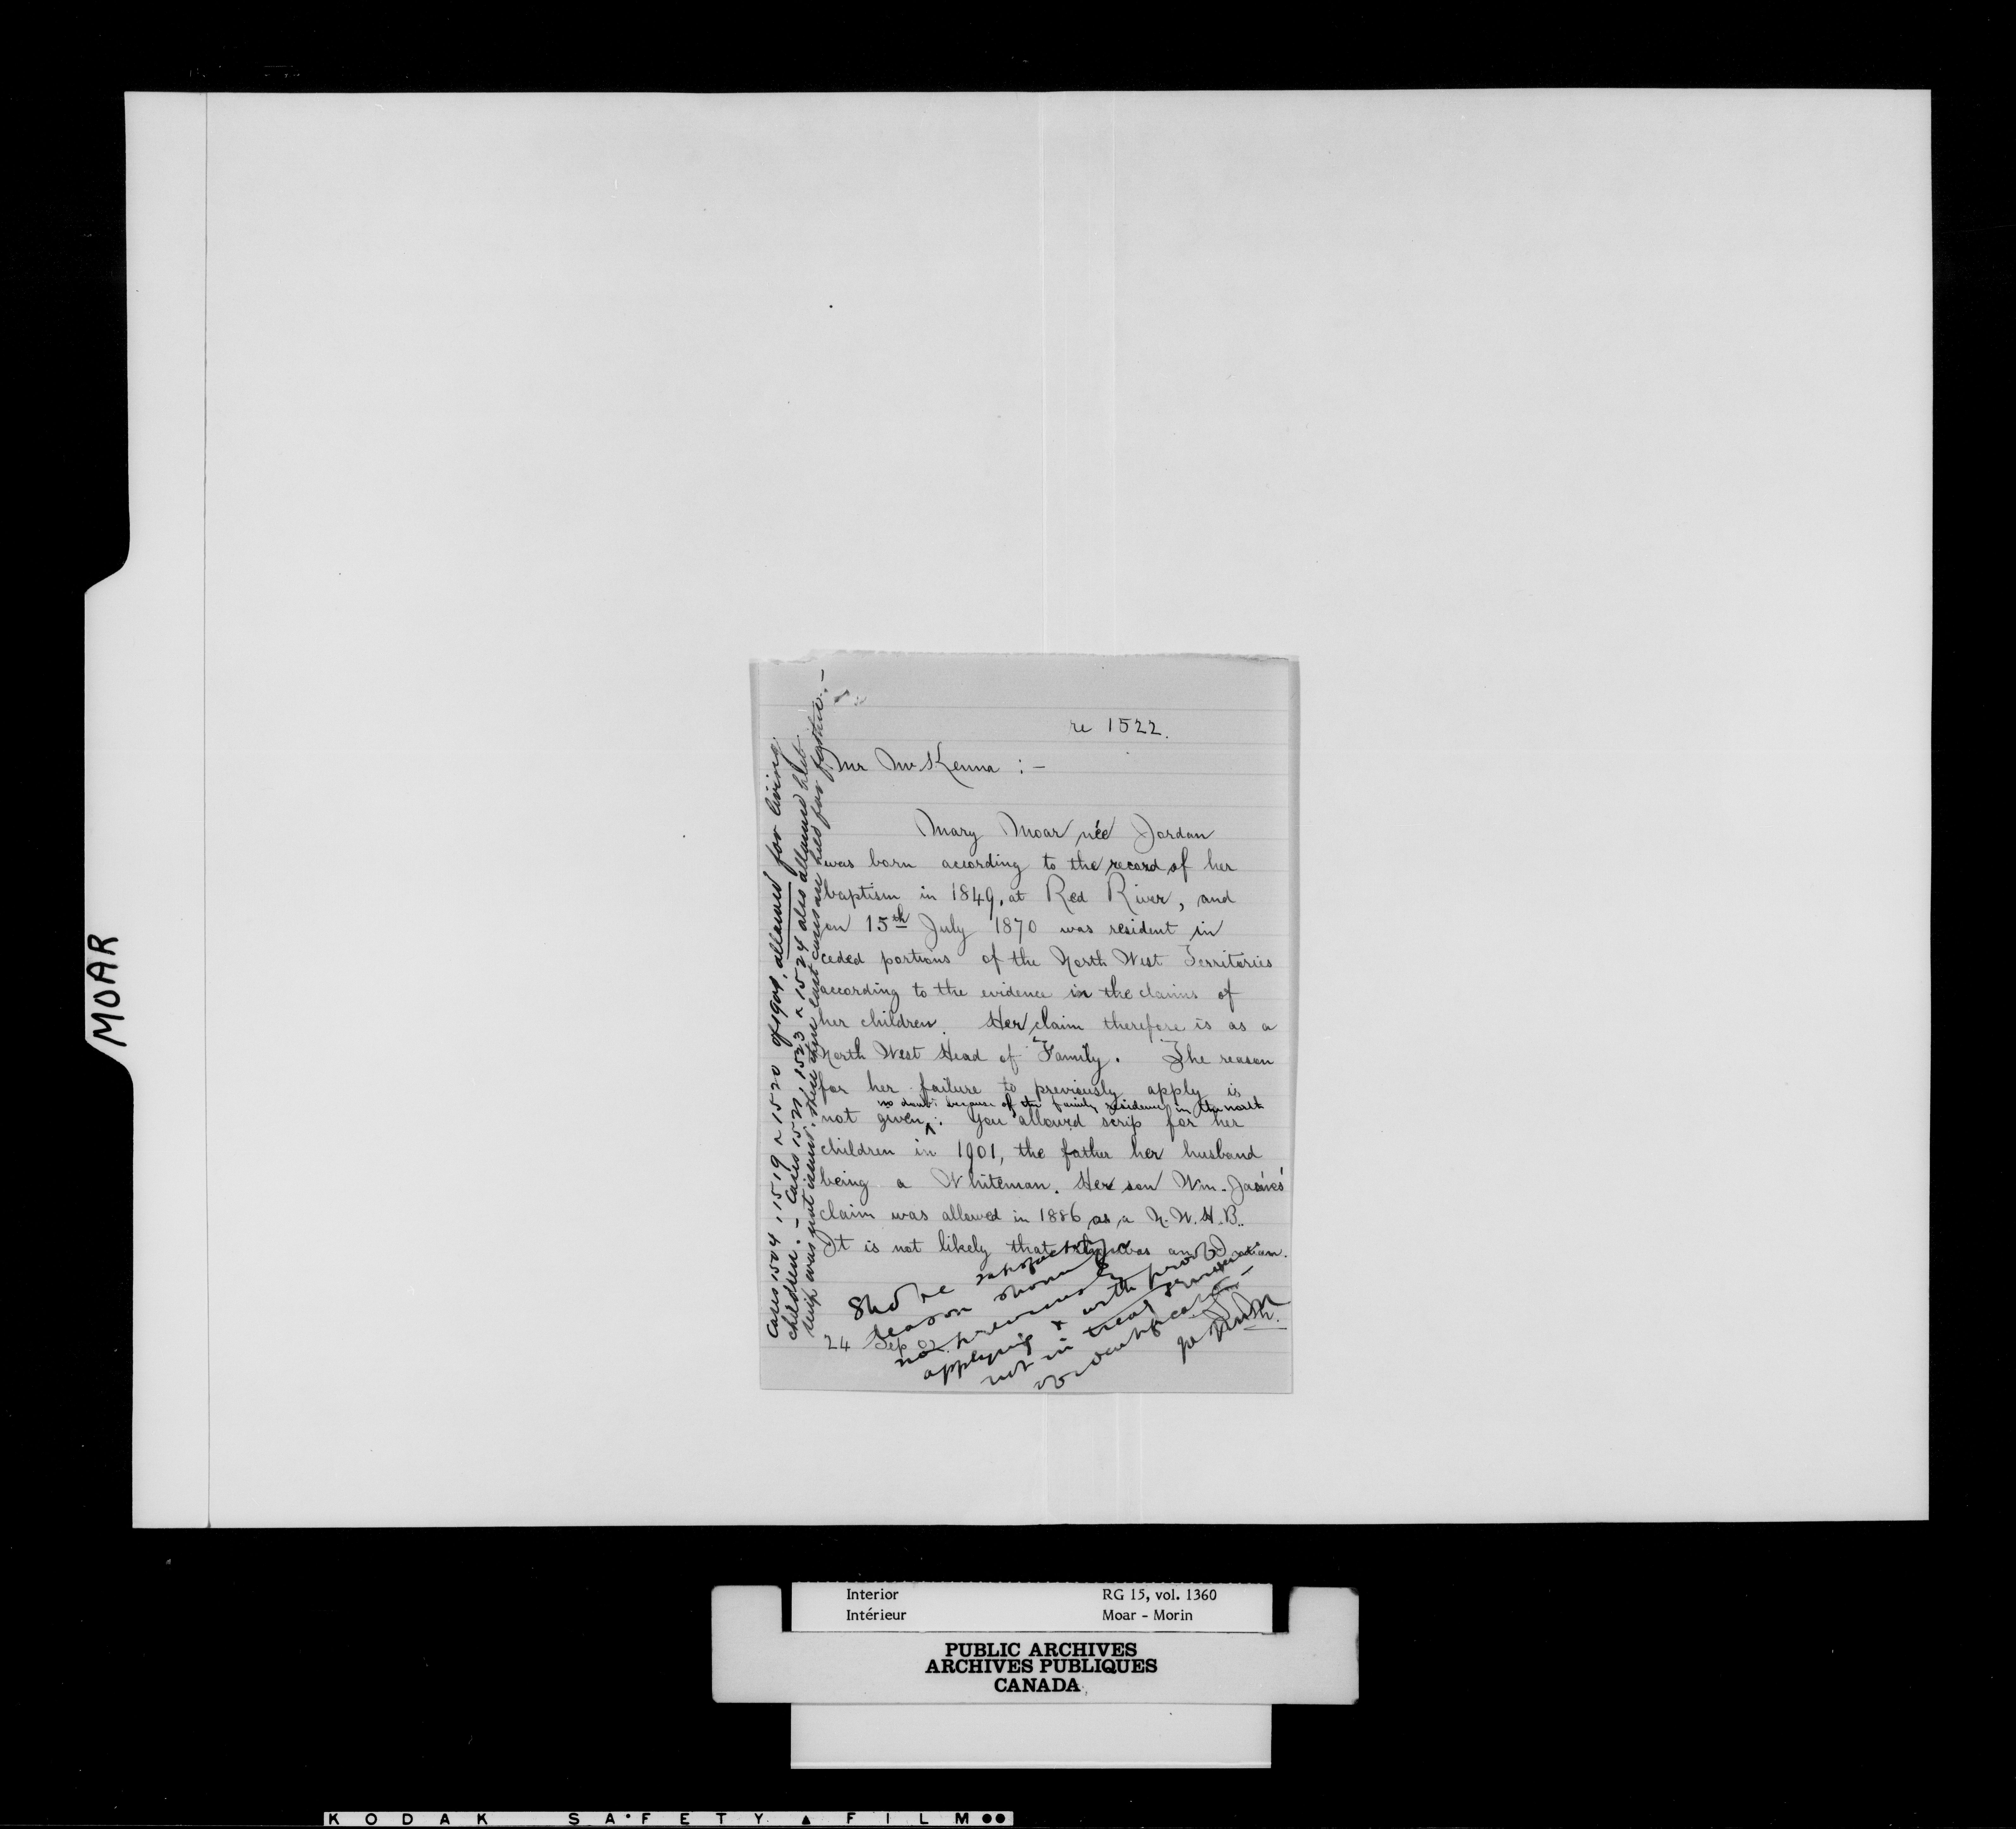 MOAR
re 1522.
Mr McKenna :-
Mary Moar née Jordan
was born according to the record of her
baptism in 1849, at Red River, and
on 15th July 1870 was resident in
ceded portions of the North West Territories
according to the evidence in the claims of
her children. Her claim therefore is as a
North West Head of Family. The reason
for her failure to previously apply is
no doubt because of the family residence in the north
not given. You allowed scrip for her
children in 1901, the father her husband
being a Whiteman. Her son Wm. James'
claim was allowed in 1886 as a N.W.H.B.
It is not likely that she was an Indian.
24 Sep 02.
Shd be satisfactory
reason shown for
not previously
applying & with proof
not in treaty
Cases 1504, 1519 & 1520 of 1901, allowed for living
children. - Cases 1521, 1523 & 1524 also allowed but
scrip was not issued. These three last cases are held for
Interior
Intérieur
RG 15, vol. 1360
Moar - Morin
PUBLIC ARCHIVES
ARCHIVES PUBLIQUES
CANADA
KODAK SAFETY FILM